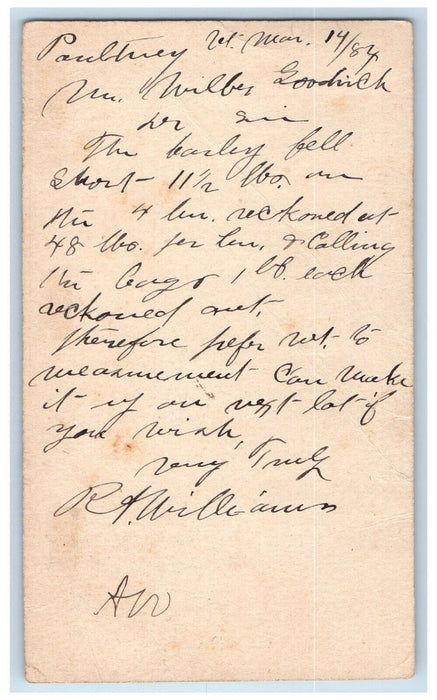 Poultney Vt. Mar. 14/84
Mr. Wilber Goodrich
Dr Sir
The barley fell
short 11½ lbs. on
the 4 bu. reckoned at
48 lbs. per bu. & Calling
the bags 1 lb. each
reckoned out.
Therefore prefer wt. to
measurement Can make
it up on next lot if
you wish,
Very Truly
R. Williams
AW